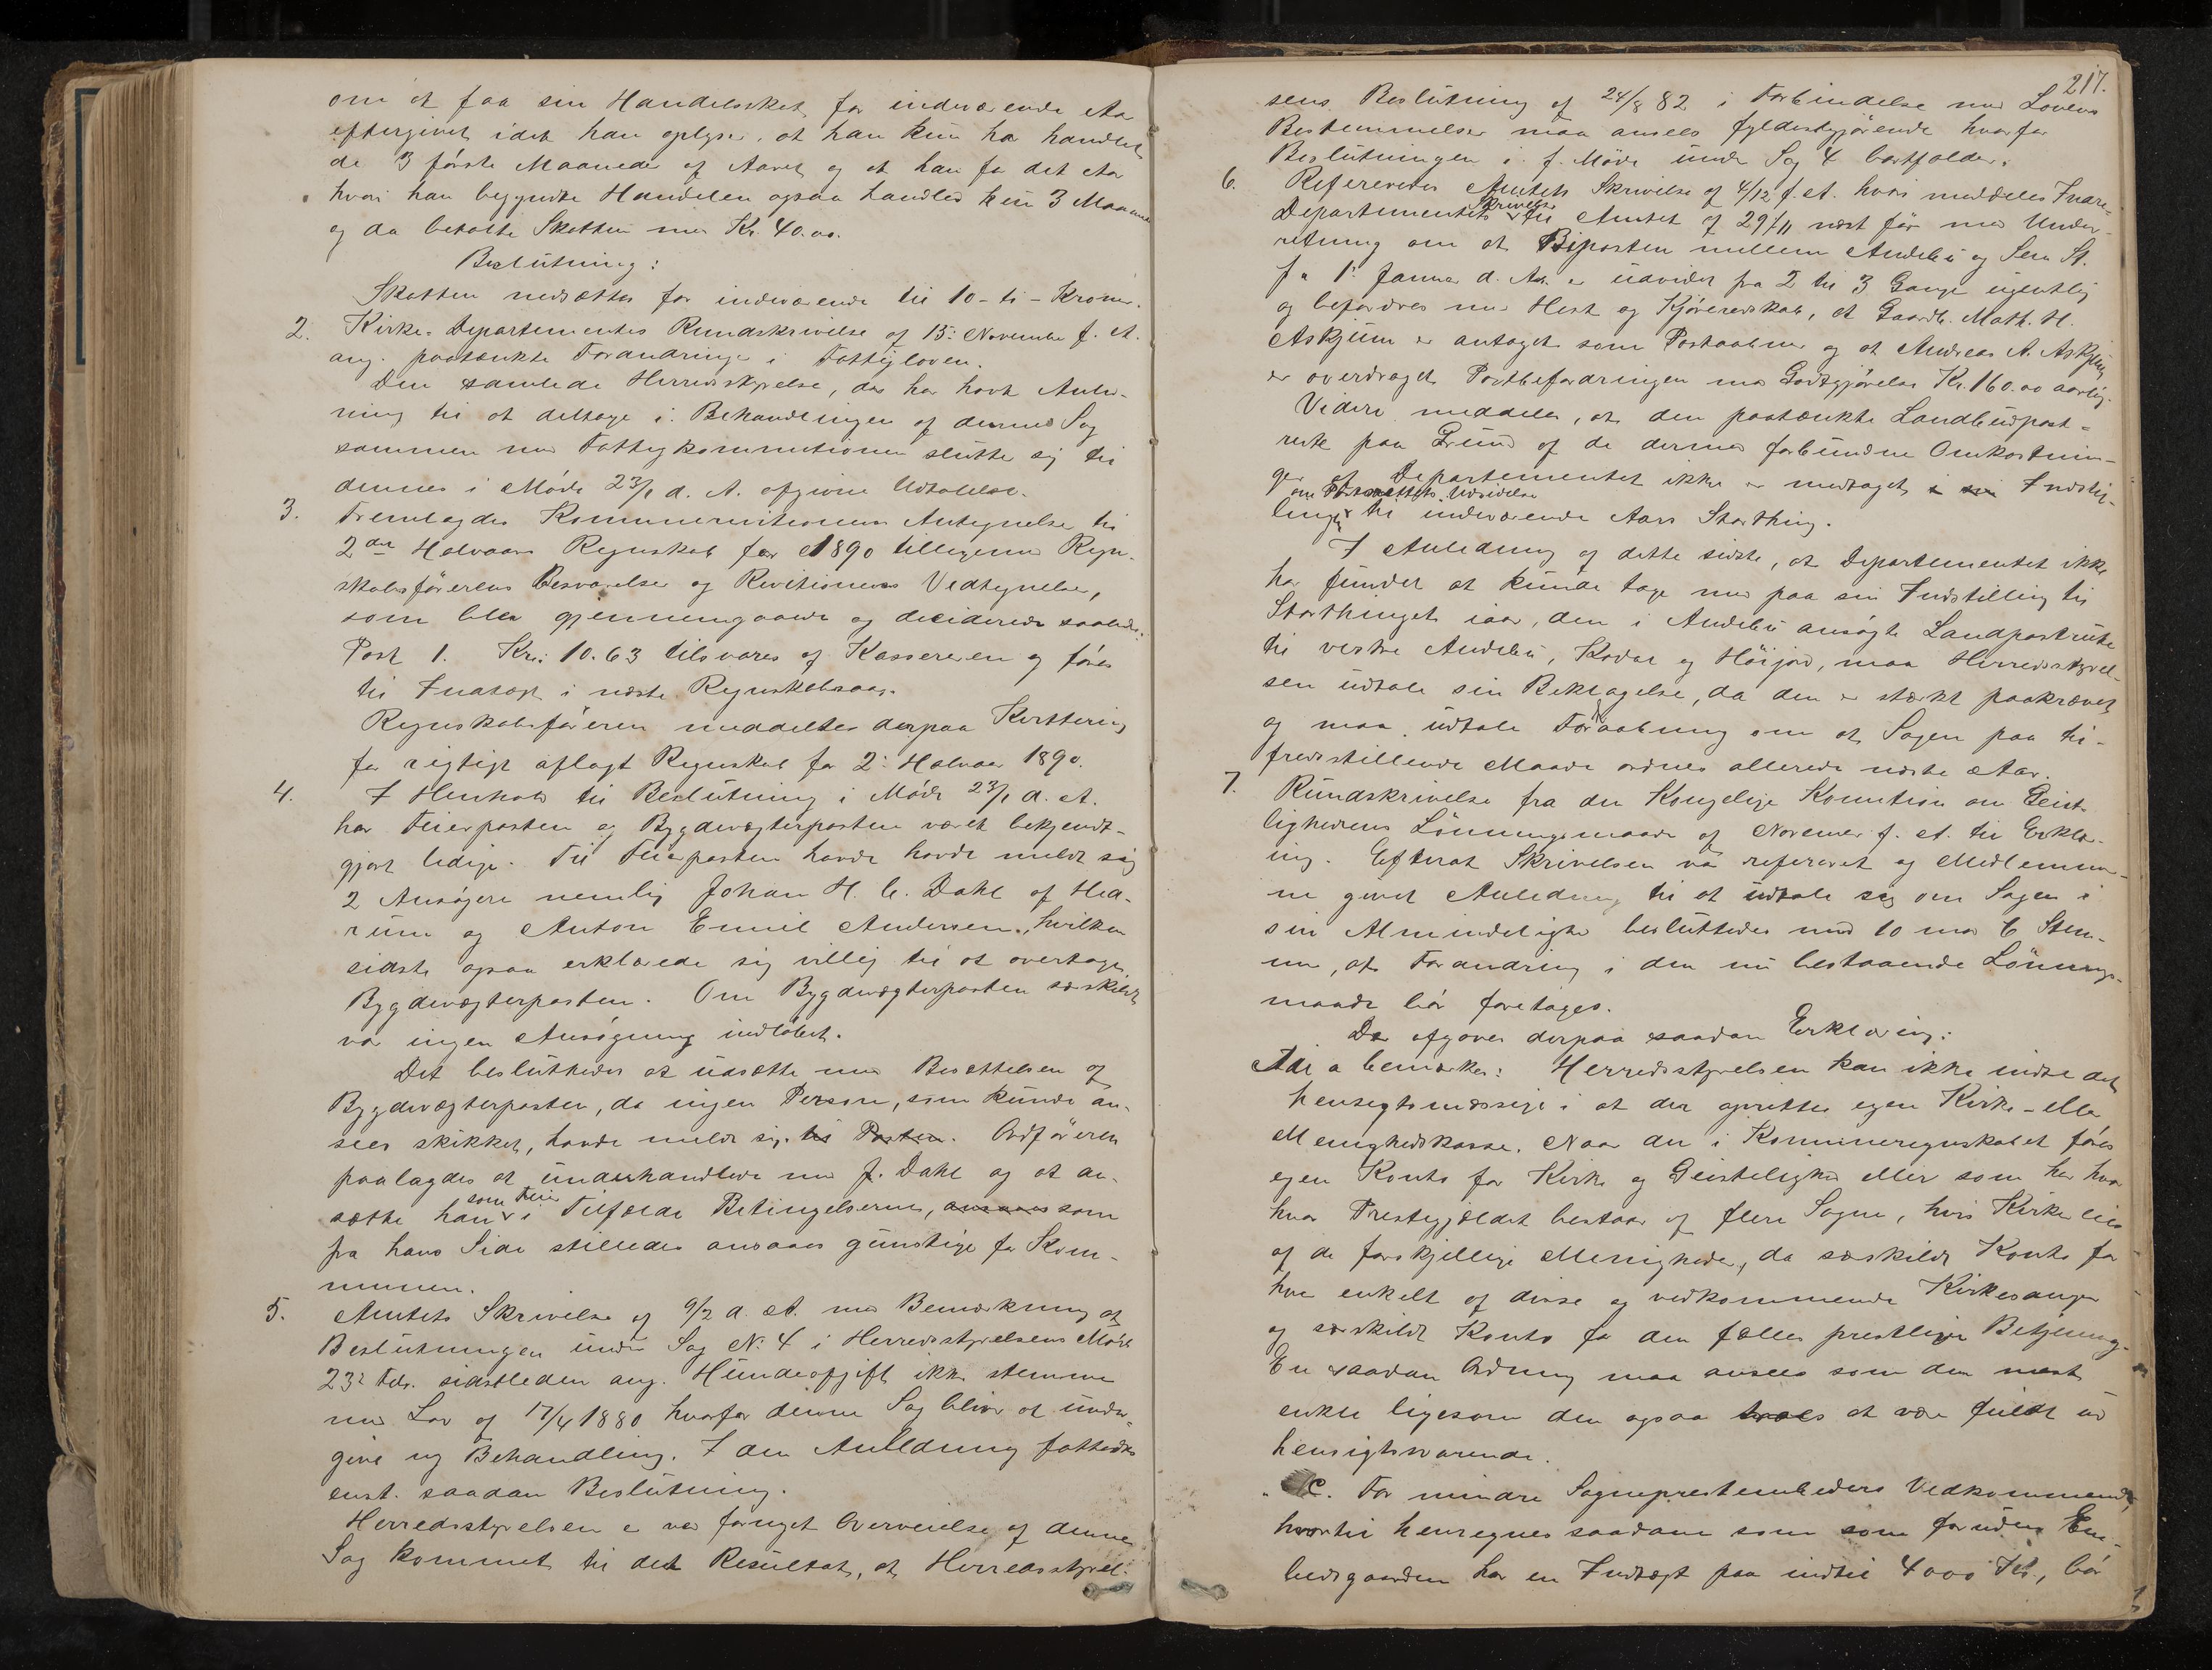 om at faa sin Handelsskat for indeværende Aar
eftergivet idet han oplyser, at han kun har handlet
de 3 første Maaneder af Aaret og at han for det Aar
hvori han begyndte Handelen ogsaa handled kun 3 Maaneder
og da betalte Skatten med Kr. 40.00.
Beslutning:
Skatten nedsættes for indeværende til 10 - ti - Kroner.
2. Kirke-Departementets Rundskrivelse af 15: November f. A.
ang. paatænkte Forandringer i Fattigloven.
Den samlede Herredsstyrelse, der har havt Anled-
ning til at deltage i Behandlingen af denne Sag
sammen med Fattigkommissionen slutter sig til
dennes i Møde 23/1 d. A. afgivne Udtalelse.
3. Fremlagdes Kommunerevisionens Antegnelser til
2den Halvaars Regnskab for 1890 tilligemed Regn-
skabsførerens Besvarelse og Revisionens Vedtegnelser,
som blev gjennemgaaede og desiderede saaledes:
Post 1. Kr: 10.63 tilsvares af Kassereren og føres
til Indtægt i næste Regnskabsaar.
Regnskabsføreren meddeltes derpaa Kvittering
for rigtigt aflagt Regnskab for 2: Halvaar 1890.
4. I Henhold til Beslutning i Møde 23/1 d. A.
har Feierposten og Bygdevægterposten været bekjendt-
gjort ledige. Til Feierposten havde havde meldt sig
2 Ansøgere nemlig Johan H. C. Dahl af Hed-
rum og Anton Emil Andersen, hvilken
sidste ogsaa erklærede sig villig til at overtage
Bygdevægterposten. Om Bygdevægterposten særskildt
var ingen Ansøgning indløbet.
Det besluttedes at udsætte med Besættelsen af
Bygdevægterposten, da ingen Person, som kunde an-
sees skikket, havde meldt sig til Posten. Ordføreren
paalagdes at underhandlede med J. Dahl og at an-
sætte han som Feier i Tilfælde Betingelserne, ansaaes som
fra hans Side stilledes ansaaes gunstige for Kom-
munen.
5. Amtets Skrivelse af 9/2 d. A. med Bemærkning at
Beslutningen under Sag No. 4 i Herredsstyrelsens Møde
23: Febr. sidstleden ang. Hundeafgift ikke stemmer
med Lov af 17/4 1880 hvorfor denne Sag bliver at under-
give ny Behandling. I den Anledning fattedes
enst. saadan Beslutning.
Herredsstyrelsen er ved fornyet Overveielse af denne
Sag kommet til det Resultat, at Herredsstyrel-
217.
sens Beslutning af 24/8 82 i Forbindelse med Lovens
Bestemmelser maa ansees fyldestgjørende hvorfor
Beslutningen i f. Møde under Sag 4 bortfalder.
6. Refereredes Amtets Skrivelse af 4/12 f. A. hvori meddeles Indre-
Departementets Skrivelse til Amtet af 29/11 næst før med Under-
retning om at Biposten mellem Andebu og Sem St.
fra 1: Januar d. Aar er udvidet fra 2 til 3 Gange ugentlig
og befordres med Hest og Kjøreredskab, at Gaardb. Math. H.
Askjum er antaget som Postaabner og at Andreas A. Askjum
er overdraget Postbefordringen med Godtgjørelse Kr. 160.00 aarlig.
Videre meddeles, at den paatænkte Landbudpost-
rute paa Grund af de dermed forbundne Omkostnin-
ger af Departementet ikke er medtaget i sin Indstil-
linger om Postvæsenets Udvidelse til indeværende Aars Storthing.
I Anledning af dette sidste, at Departementet ikke
har fundet at kunde tage med paa sin Indstilling til
Storthinget iaar, den i Andebu ansøgte Landpostrute
til vestre Andebu, Kodal og Høijord, maa Herredsstyrel-
sen udtale sin Beklagelse, da den er stærkt paakrævet
og maa udtale Forhaabning om at Sagen paa til-
fredsstillende Maade ordnes allerede næste Aar.
7. Rundskrivelse fra den Kongelige Komission om Geist-
lighedens Lønningsmaade af November f. A. til Erklæ-
ing. Efterat Skrivelsen var refereret og Medlemmer-
ne givet Anledning til at udtale sig om Sagen i
sin Almindelighed besluttedes med 10 mod 6 Stem-
mer, at Forandring i den nu bestaaende Lønnings-
maade bør foretages.
Der afgaves derpaa saadan Erklæring:
Ad a bemærkes: Herredsstyrelsen kan ikke indse det
hensigtsmæssige i at der oprettes egen Kirke- eller
Menighedskasse. Naar der i Kommuneregnskabet føres
egen Konto for Kirke og Geistelighed eller som her hvor
hvor Prestegjældet bestaar af flere Sogne, hvis Kirker eies
af de forskjellige Menigheder, da særskildt Konto for
hver enkelt af disse og vedkommende Kirkesanger
og særskildt Konto for den fælles prestelige Betjening.
En saadan Ordning maa ansees som den mest
enkle ligesom den ogsaa troes at være fuldt ud
hensigtsvarende.
" C. For mindre Sogneprestembeders Vedkommende,
hvortil henregnes saadanne som som foruden Em-
bedsgaarden har en Indtægt paa indtil 4000 Kr., bør